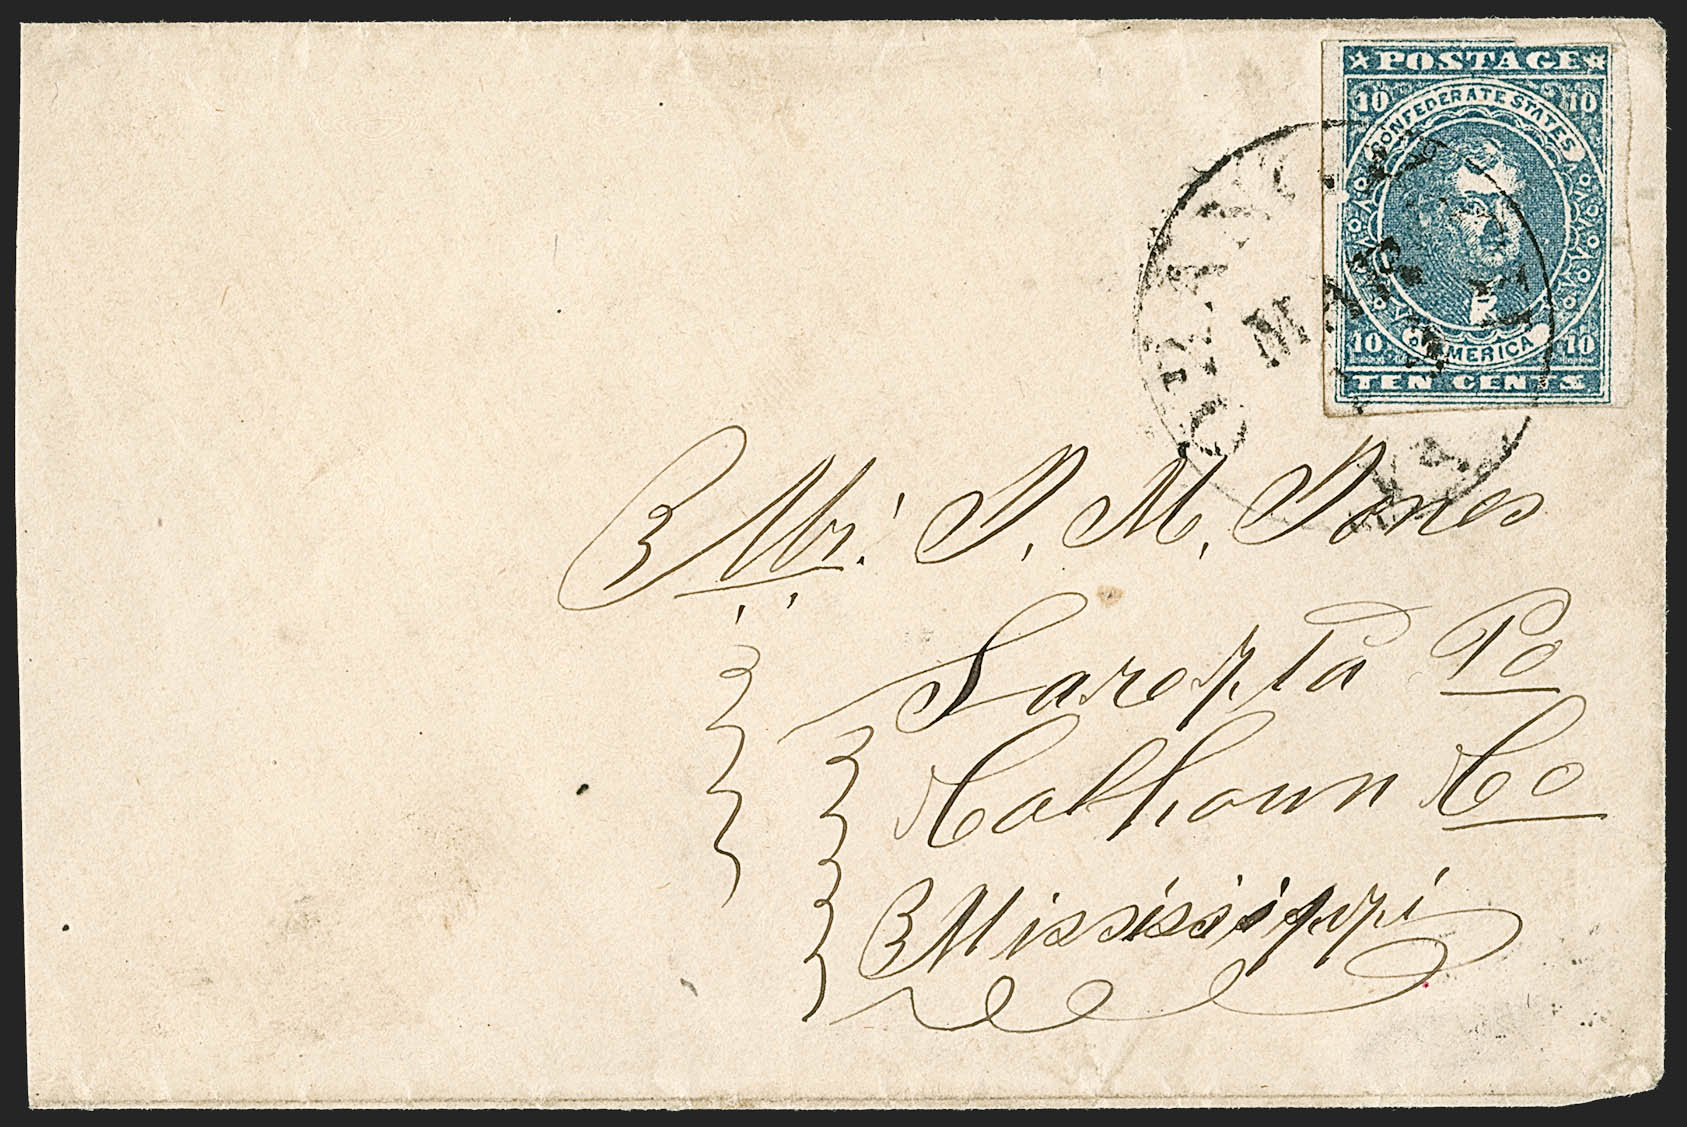 ★ POSTAGE ★
10 10
CONFEDERATE STATES
OF AMERICA
10 10
TEN CENTS
ORANGE
MAR
VA
Mr. J. M. Jones
Sarepta Po
Calhoun Co
Mississippi